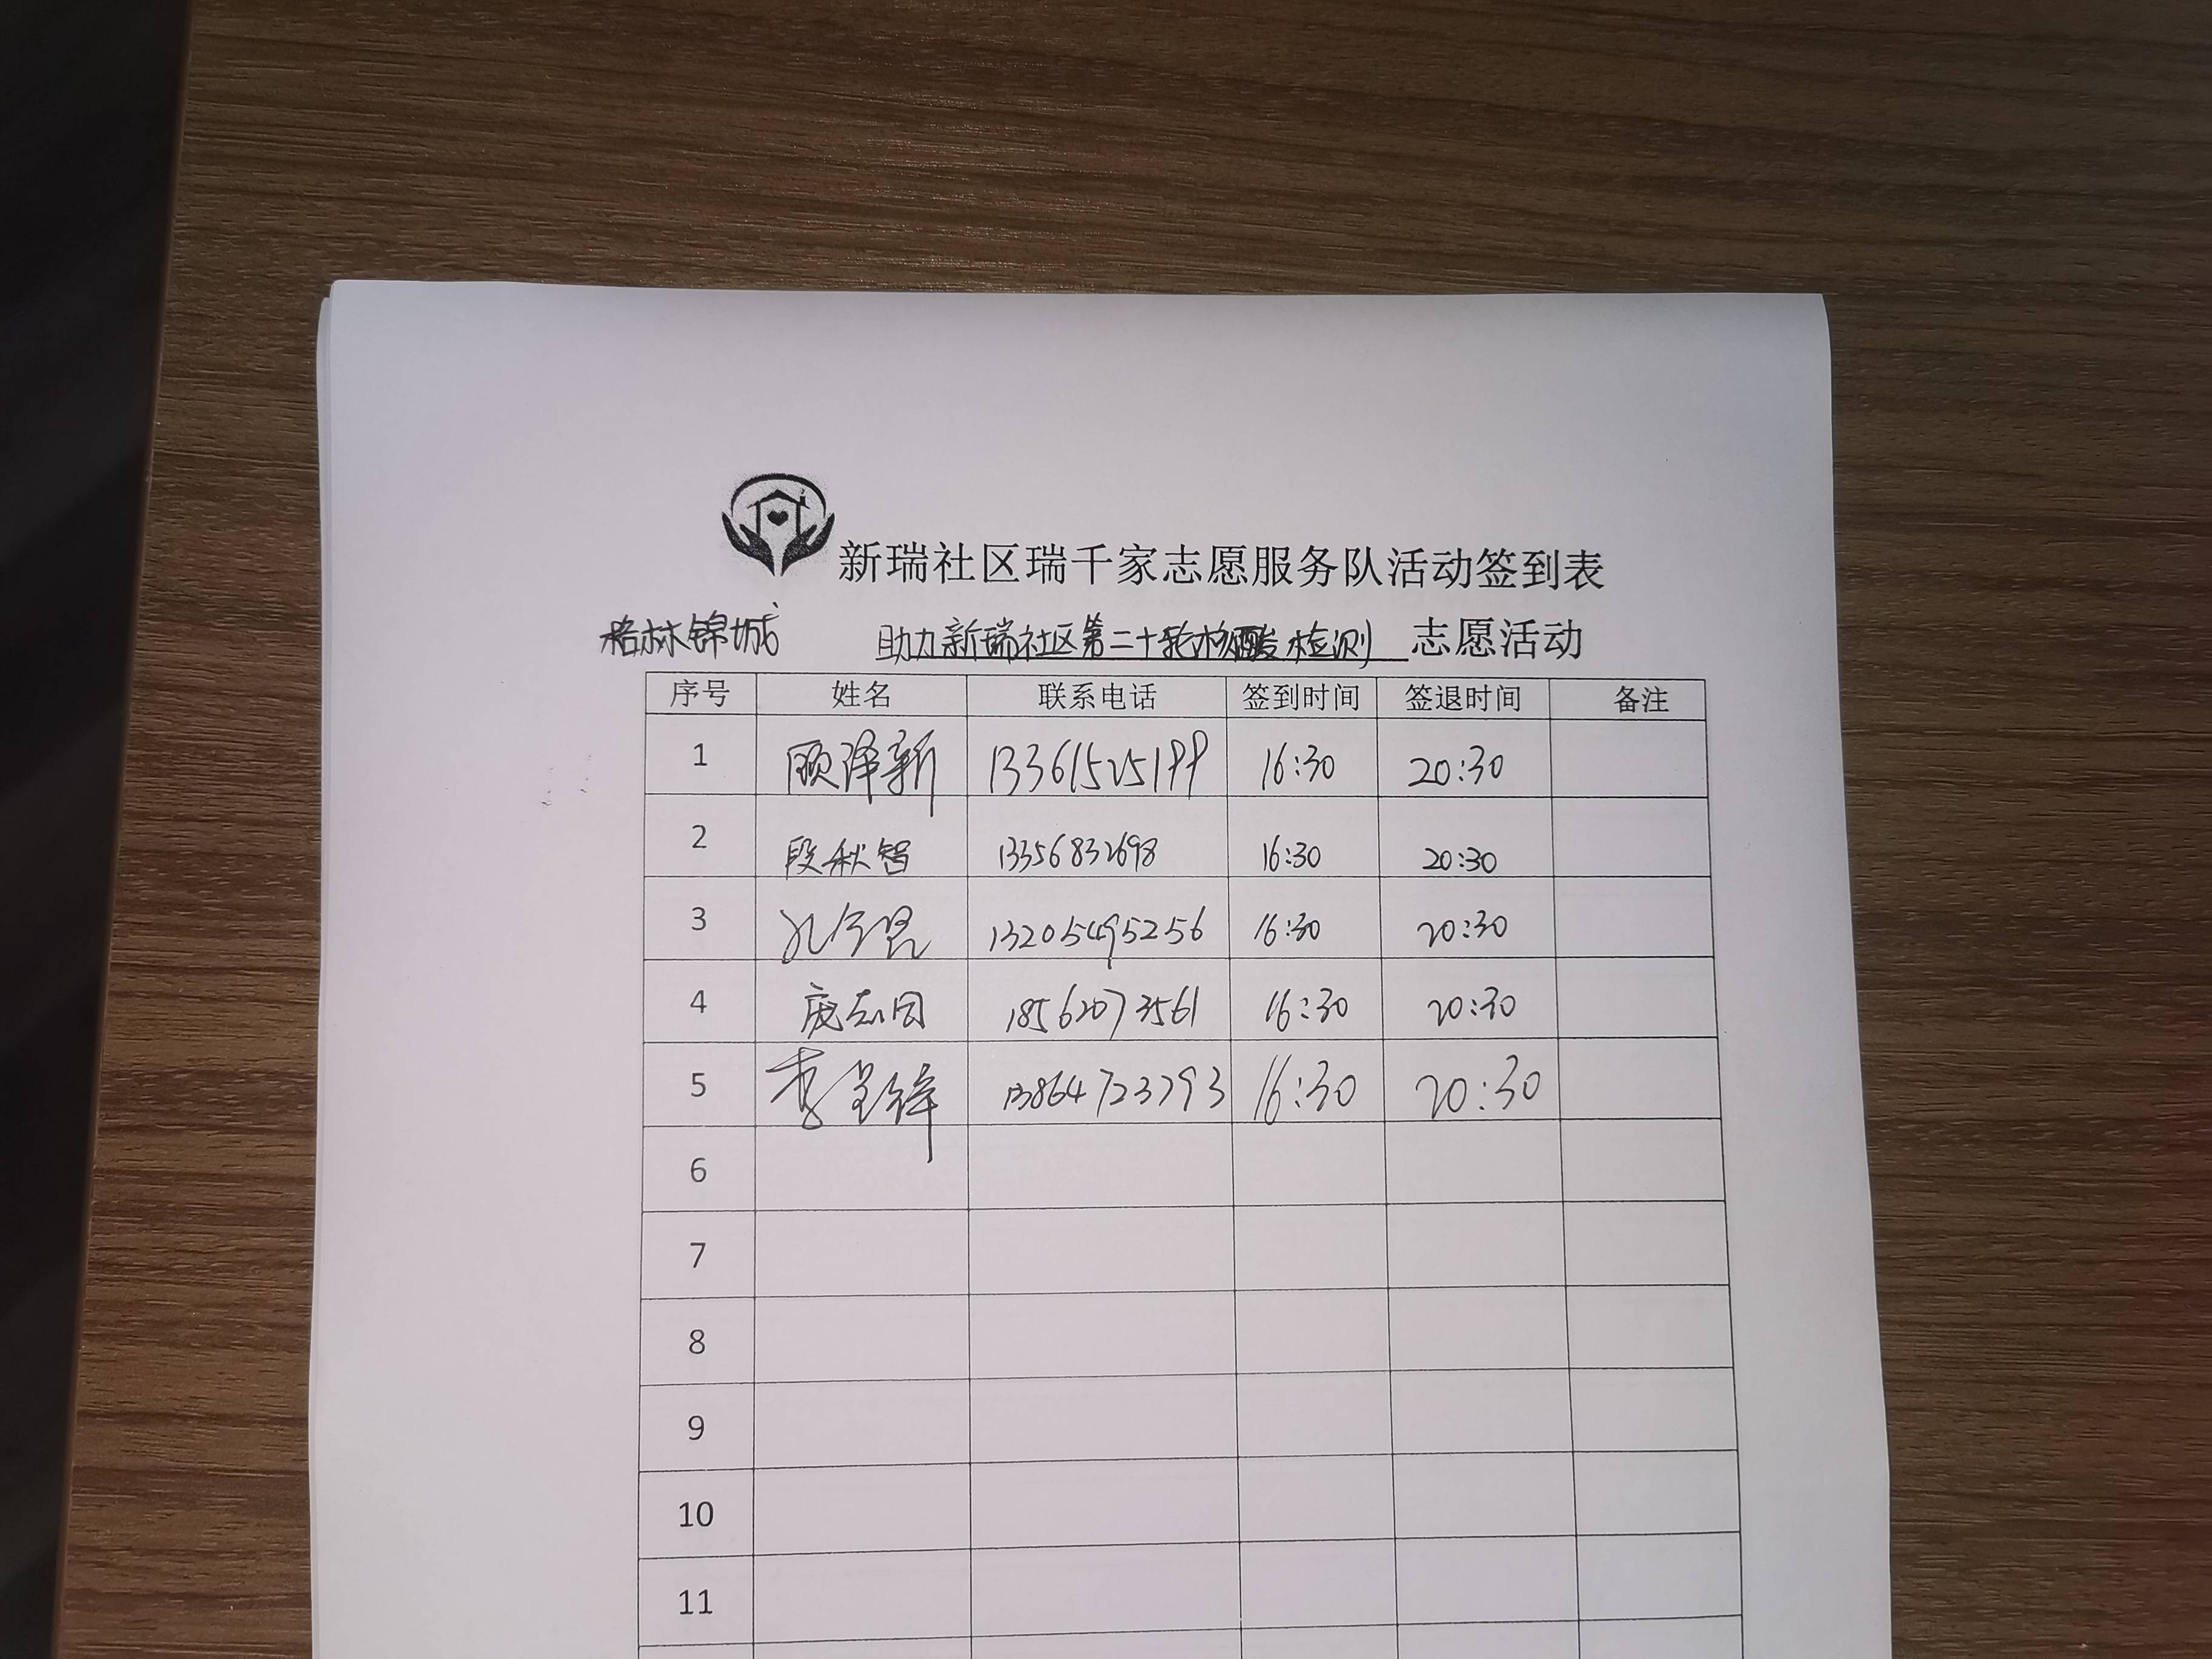 新瑞社区瑞千家志愿服务队活动签到表
格林锦城 助力新瑞社区第二十轮核酸检测 志愿活动
序号 姓名 联系电话 签到时间 签退时间 备注
1 顾泽新 13361525199 16:30 20:30
2 段秋智 13356832698 16:30 20:30
3 孔令昆 13205495256 16:30 20:30
4 庞志国 18562073561 16:30 20:30
5 李 锋 13864723793 16:30 20:30
6
7
8
9
10
11